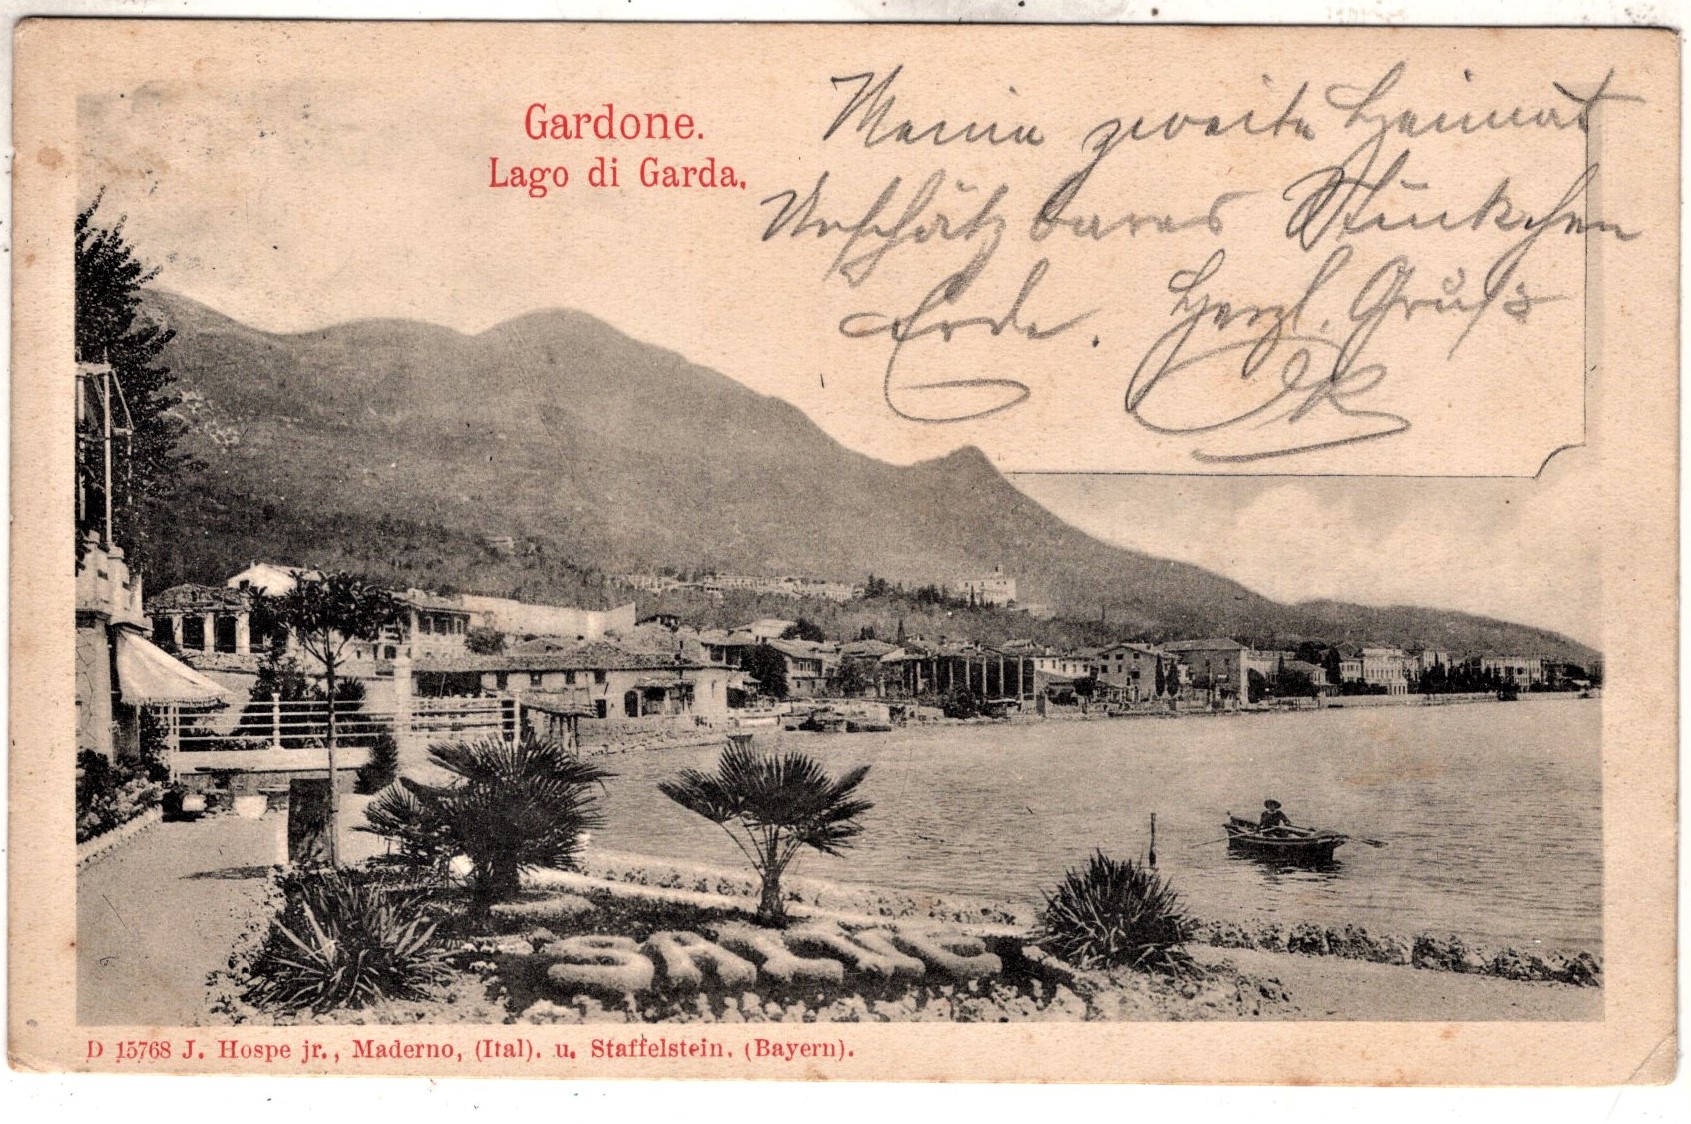 Gardone.
Lago di Garda.
Meine zweite Heimat
Unschätzbares Stückchen
Erde. Herzl. Gruß
SALVE
D 15768 J. Hospe jr., Maderno, (Ital). u. Staffelstein. (Bayern).